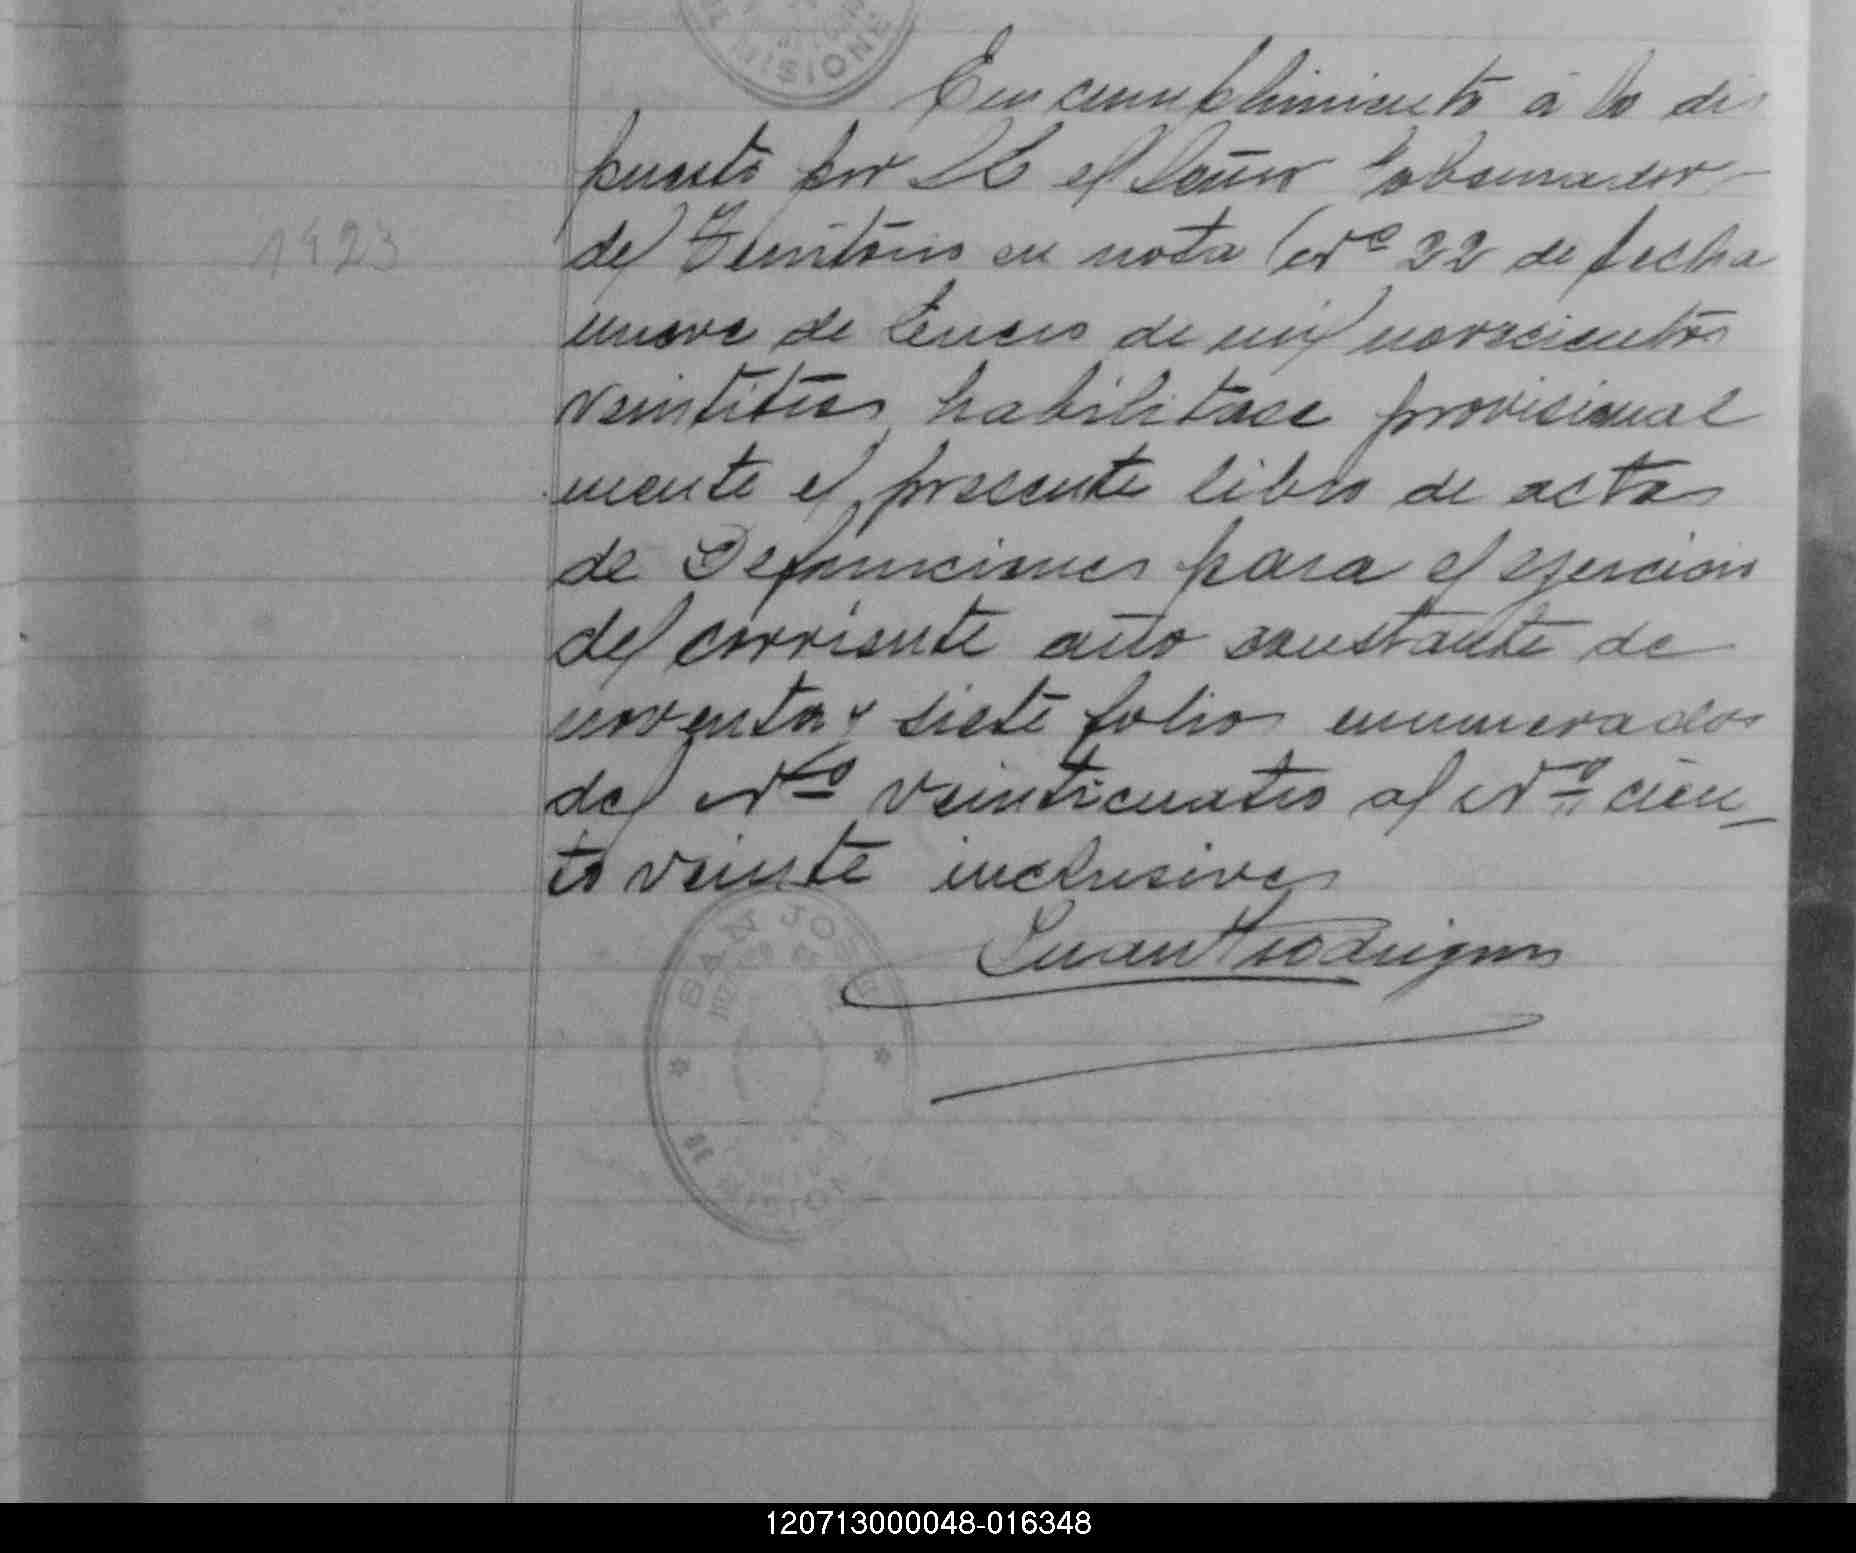 MISIONE
En cumplimiento á lo dis
puesto por SE el Señor Gobernador
del Territorio en nota Nº 32 de fecha
1923
nueve de Enero de mil novecientos
veintitres, habilitase provisional
mente el presente libro de actas
de Defunciones para el ejercicio
del corriente año constante de
noventa y siete folios enumerados
del Nº veinticuatro al Nº cien_
to veinte inclusives
Juan Rodrigues
SAN JOSE
120713000048-016348